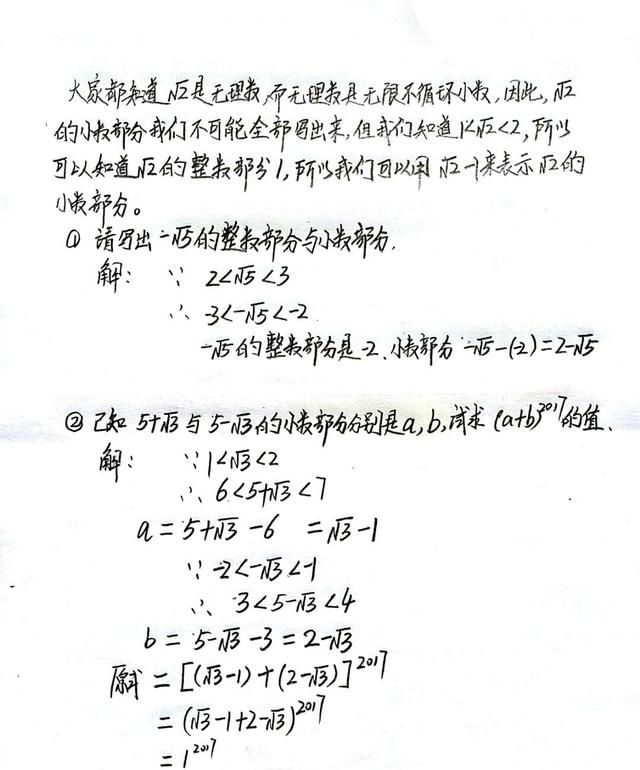 大家都知道√2是无理数,而无理数是无限不循环小数,因此,√2
的小数部分我们不可能全部写出来,但我们知道1<√2<2,所以
可以知道√2的整数部分1,所以我们可以用 √2-1来表示√2的
小数部分。
① 请写出-√5的整数部分与小数部分.
解: ∵ 2<√5<3
∴ -3<-√5<-2
-√5的整数部分是-2.小数部分 -√5-(-2)=2-√5
② 已知 5+√3与 5-√3的小数部分分别是a,b,试求 (a+b)²⁰¹⁷的值.
解: ∵1<√3<2
∴ 6<5+√3<7
a=5+√3-6 =√3-1
∵ -2<-√3<-1
∴ 3<5-√3<4
b= 5-√3-3=2-√3
原式 =[(√3-1)+(2-√3)]²⁰¹⁷
=(√3-1+2-√3)²⁰¹⁷
=1²⁰¹⁷